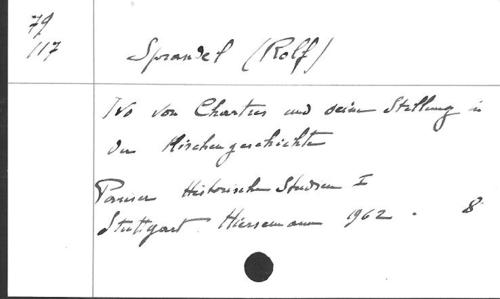 79
117
Sprandel (Rolf)
Ivo von Chartres und seine Stellung in
der Kirchengeschichte
Pariser Historische Studien I
Stuttgart Hiersemann 1962 . 8°